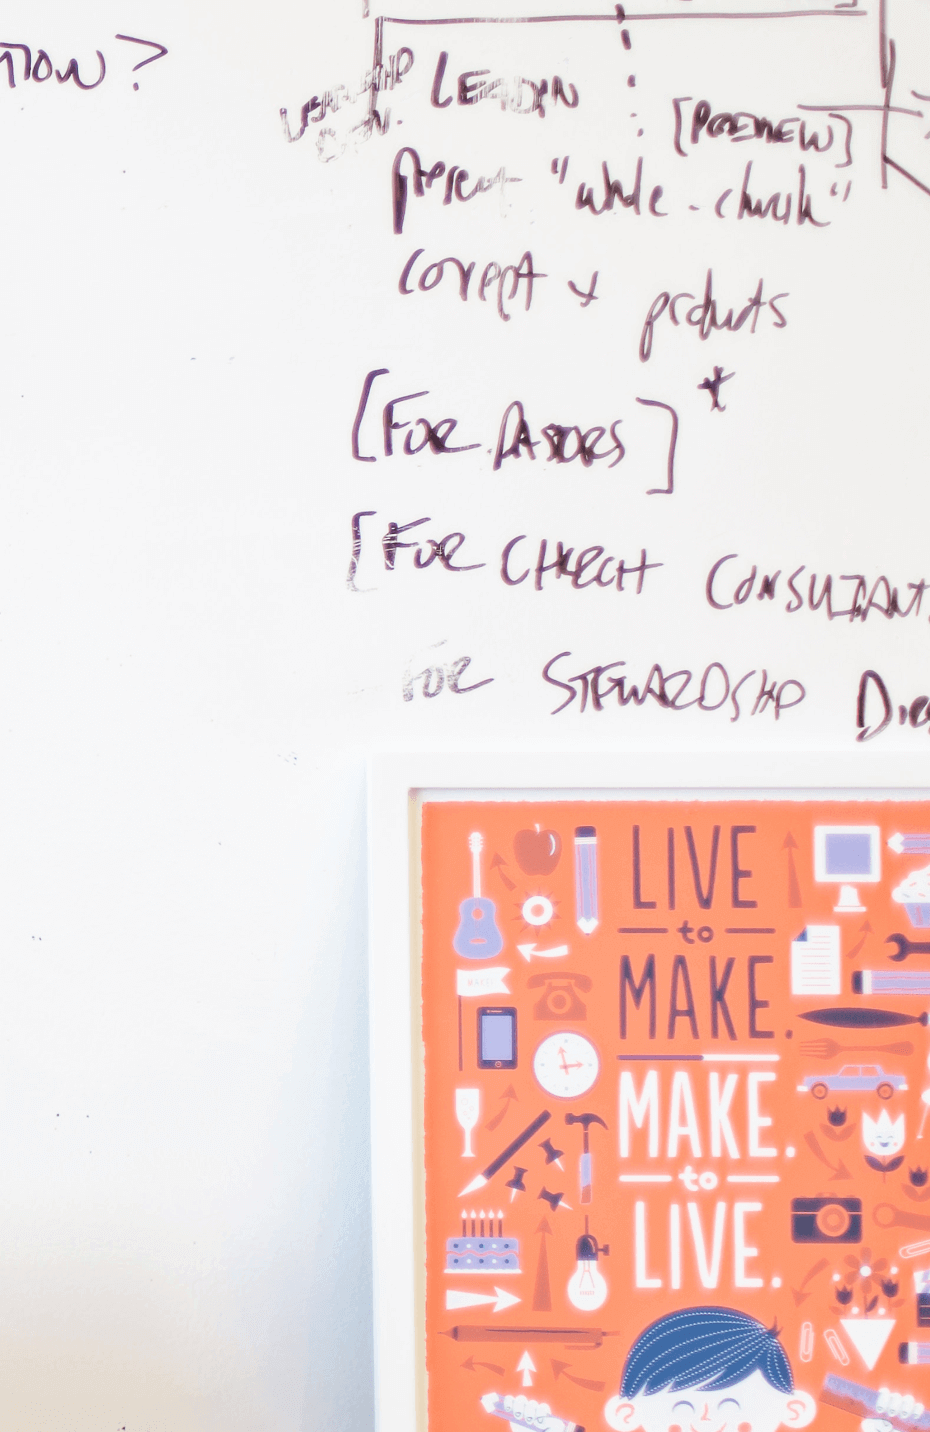 TION?
LEADERSHIP
LEADEN
[PREVIEW]
present "whole-church"
concept + products
[FOR PASTORS]*
[FOR CHURCH CONSULTANT
FOR STEWARDSHIP DIRE
LIVE
to
MAKE.
MAKE.
to
LIVE.